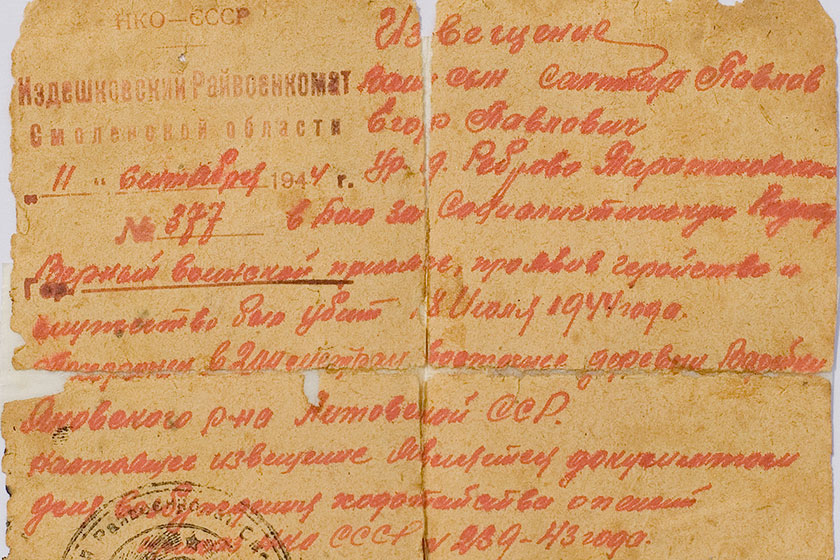 НКО—СССР
Издешковский Райвоенкомат
Смоленской области
„ 11 “ сентября 1944 г.
№ 377
Извещение
Ваш сын санитар Павлов
Егор Павлович
ур. д. Реброво
в бою за социалистическую Родину
Верный воинской присяге, проявив геройство и
мужество был убит 18 Июля 1944 года.
в 2 км восточнее деревни
Яновского р-на Литовской ССР.
настоящее извещение является документом
для возбуждения ходотайства о пенсии
НКО СССР N 239-43 года.